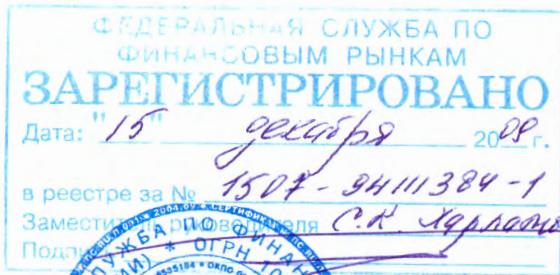 ФЕДЕРАЛЬНАЯ СЛУЖБА ПО
ФИНАНСОВЫМ РЫНКАМ
ЗАРЕГИСТРИРОВАНО
Дата: "15" декабря 2009 г.
в реестре за № 1507-94111384-1
Заместитель руководителя С.К. Харламов
Подпись
СЛУЖБА ПО ФИНАН
ОГРН 10